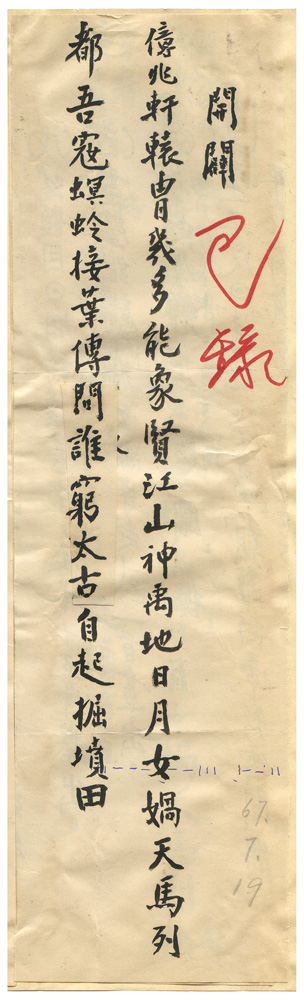 開闢
已錄
億兆軒轅胄幾多能象賢江山神禹地日月女媧天馬列
都吾寇螟蛉接葉傳問誰窮太古自起掘墳田
67.
7.
19